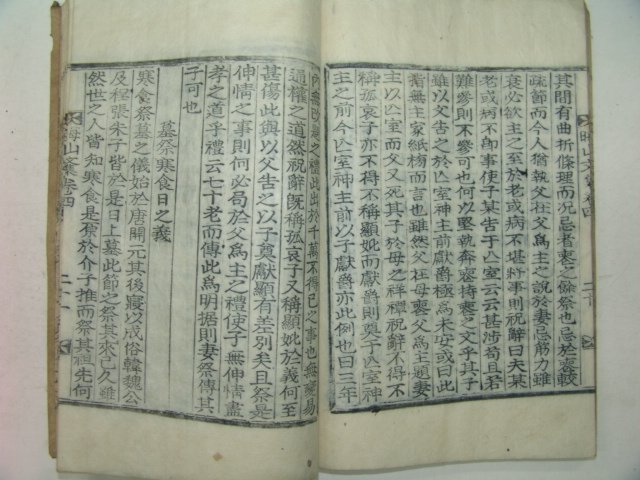 其間有曲折條理而況忌者喪之餘祭也忌於喪較
疏節而今人猶執父在父爲主之說於妻忌筋力雖
衰必欲主之至於老或病不堪將事則祝辭曰夫某
老或病不卽事使子某告于亡室云云甚涉苟且若
難參則不參可也何以堅執奔喪持喪之子夫
雖以父告之而亡室神主前子獻爵極爲未安或曰此
指無主家紙榜而言也雖然父在母喪父爲主題妻
以亡室而父又死其子於母之祥禫祝辭不得不
稱孤哀子亦不得不稱顯妣而獻爵則奠于亡室神
主之前今以亡室神主以子獻爵亦此例也曰三年
內無改題之禮此出於千萬不得已之事也無變易
過權之道然祝辭旣稱孤哀子又稱顯妣於義何至
甚傷此與以父告之以子奠獻顯有差別矣且祭是
伸情之事則何必局於父爲主之禮使子無伸情盡
孝之道乎禮云七十老而傳此爲明據則妻祭傳其
子可也
墓祭寒食日之義
寒食祭墓之儀始於唐開元其後寢以成俗韓魏公
及程張朱子皆於是日上墓此節之祭其來已久雖
然世之人皆知寒食是原於介子推而祭其祖先何
山藁卷四